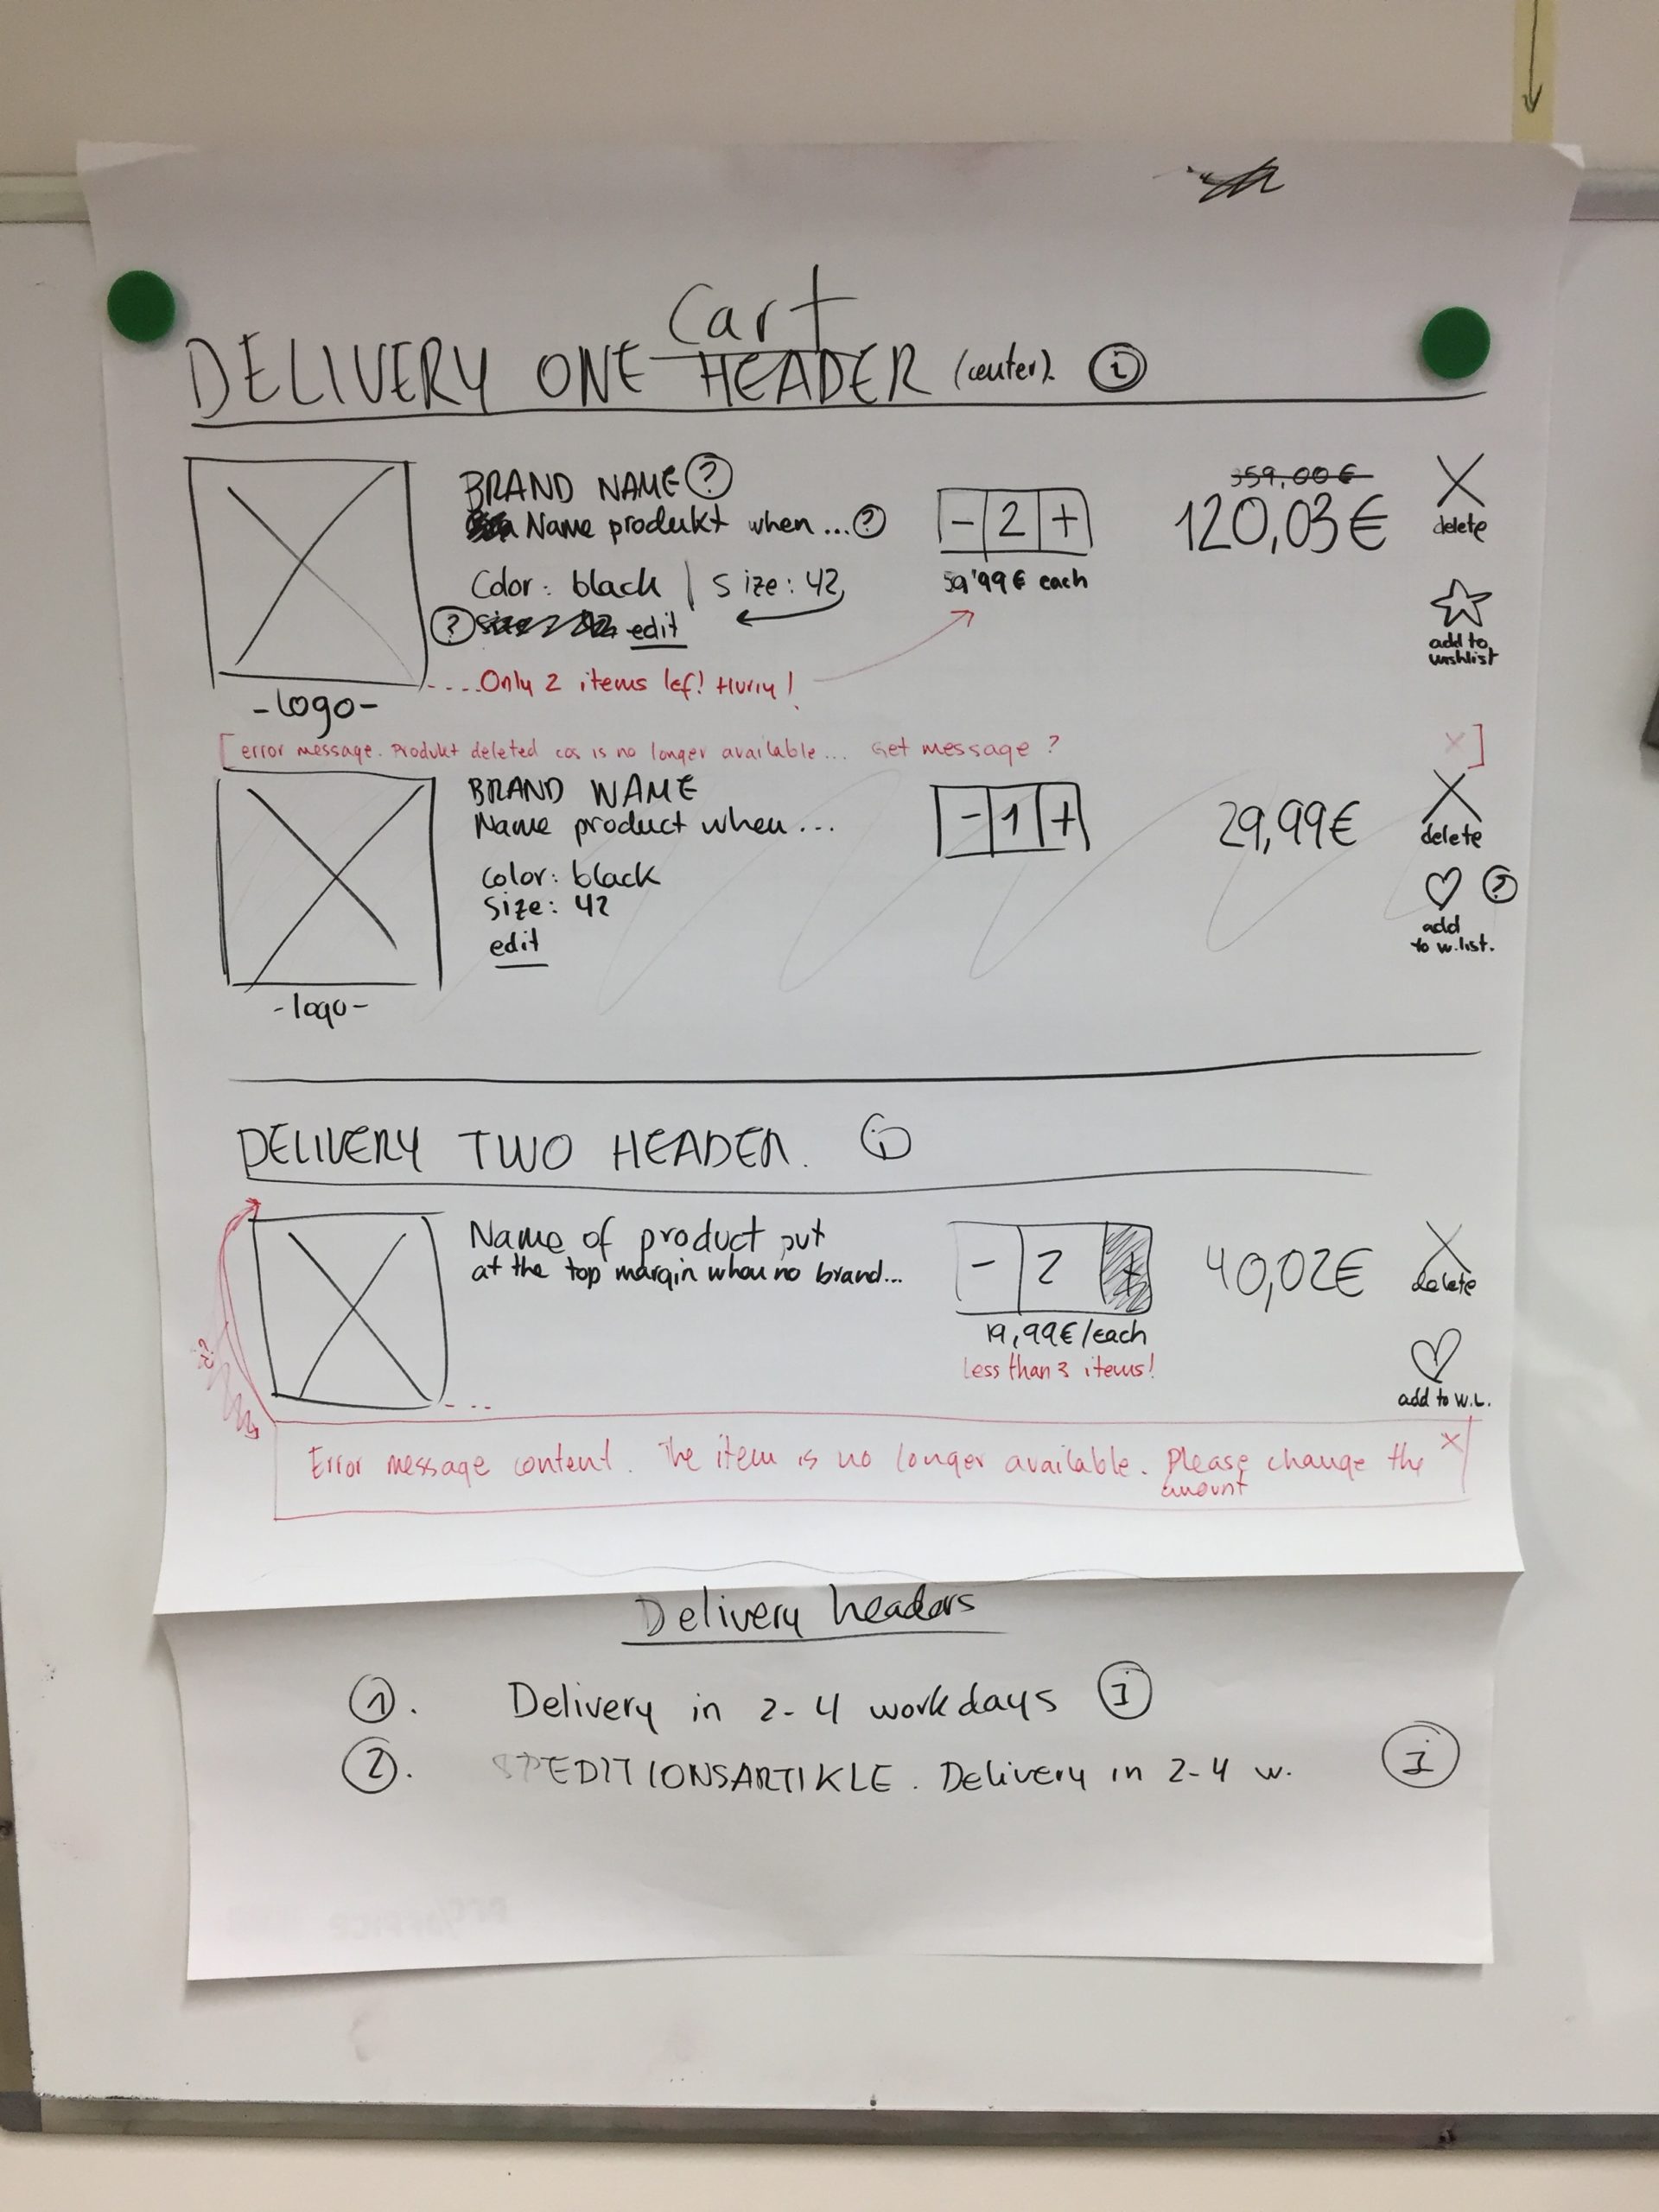 Cart
DELIVERY ONE HEADER (center). i
BRAND NAME ?
Name produkt when ... ?
Color: black | Size: 42
? edit
....Only 2 items lef! Hurry!
- logo -
- 2 +
59'99€ each
359,00€
120,03€
X
delete
add to
wishlist
[error message. Produkt deleted cos is no longer available... Get message? X]
BRAND NAME
Name product when...
color: black
Size: 42
edit
- logo -
- 1 +
29,99€
X
delete
?
add
to w.list.
DELIVERY TWO HEADER. i
Name of product put
at the top margin when no brand...
- 2 +
19,99€/each
Less than 3 items!
40,02€
X
delete
add to W.L.
...
Error message content. The item is no longer available. Please change the X
amount
Delivery headers
1. Delivery in 2-4 workdays i
2. SPEDITIONSARTIKLE. Delivery in 2-4 w. i